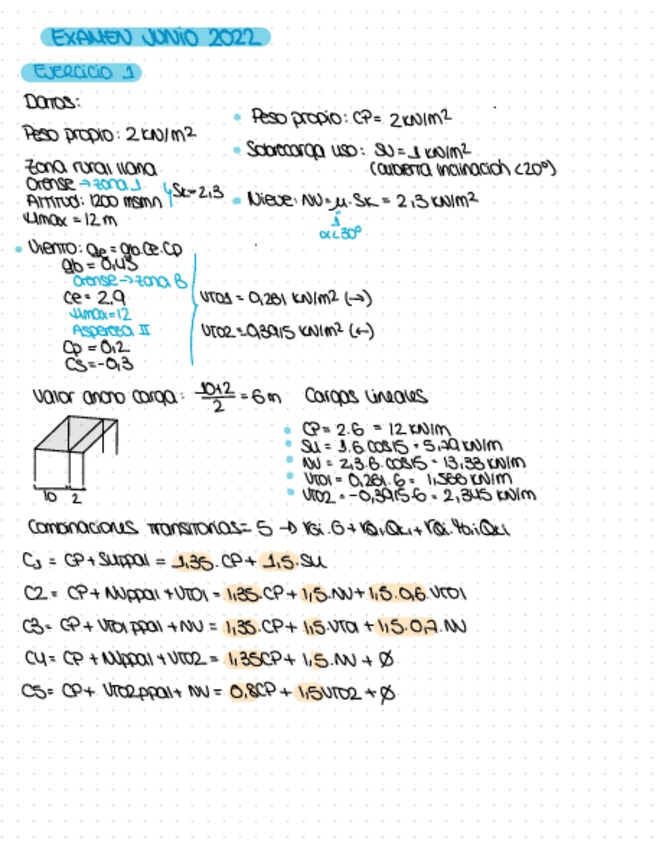 EXAMEN JUNIO 2022
EJERCICIO 1
Datos:
Peso propio: 2 kN/m²
Zona rural llana
Orense → zona 1
Altitud: 1200 msnm
Sk = 2,3
Hmax = 12 m
• Peso propio: CP = 2 kN/m²
• Sobrecarga uso: SU = 1 kN/m²
(cubierta inclinación < 20º)
• Nieve: NV = μ · Sk = 2,3 kN/m²
1
α < 30º
• Viento: qe = qb·Ce·Cp
qb = 0,45
Orense → zona B
Ce = 2,9
Hmax = 12
Aspereza II
Cp = 0,2
Cs = -0,3
VTO1 = 0,261 kN/m² (→)
VTO2 = 0,3915 kN/m² (←)
Valor ancho carga: 10+2/2 = 6 m Cargas lineales
10 2
• CP = 2·6 = 12 kN/m
• SU = 1·6·cos15 = 5,79 kN/m
• NV = 2,3·6·cos15 = 13,33 kN/m
• VTO1 = 0,261·6 = 1,566 kN/m
• VTO2 = -0,3915·6 = 2,345 kN/m
Combinaciones transitorias = 5 →
C1 = CP + SUppal = 1,35·CP + 1,5·SU
C2 = CP + NVppal + VTO1 = 1,35·CP + 1,5·NV + 1,5·0,6·VTO1
C3 = CP + VTO1 ppal + NV = 1,35·CP + 1,5·VTO1 + 1,5·0,7·NV
C4 = CP + NVppal + VTO2 = 1,35CP + 1,5·NV + Ø
C5 = CP + VTO2ppal + NV = 0,8CP + 1,5VTO2 + Ø